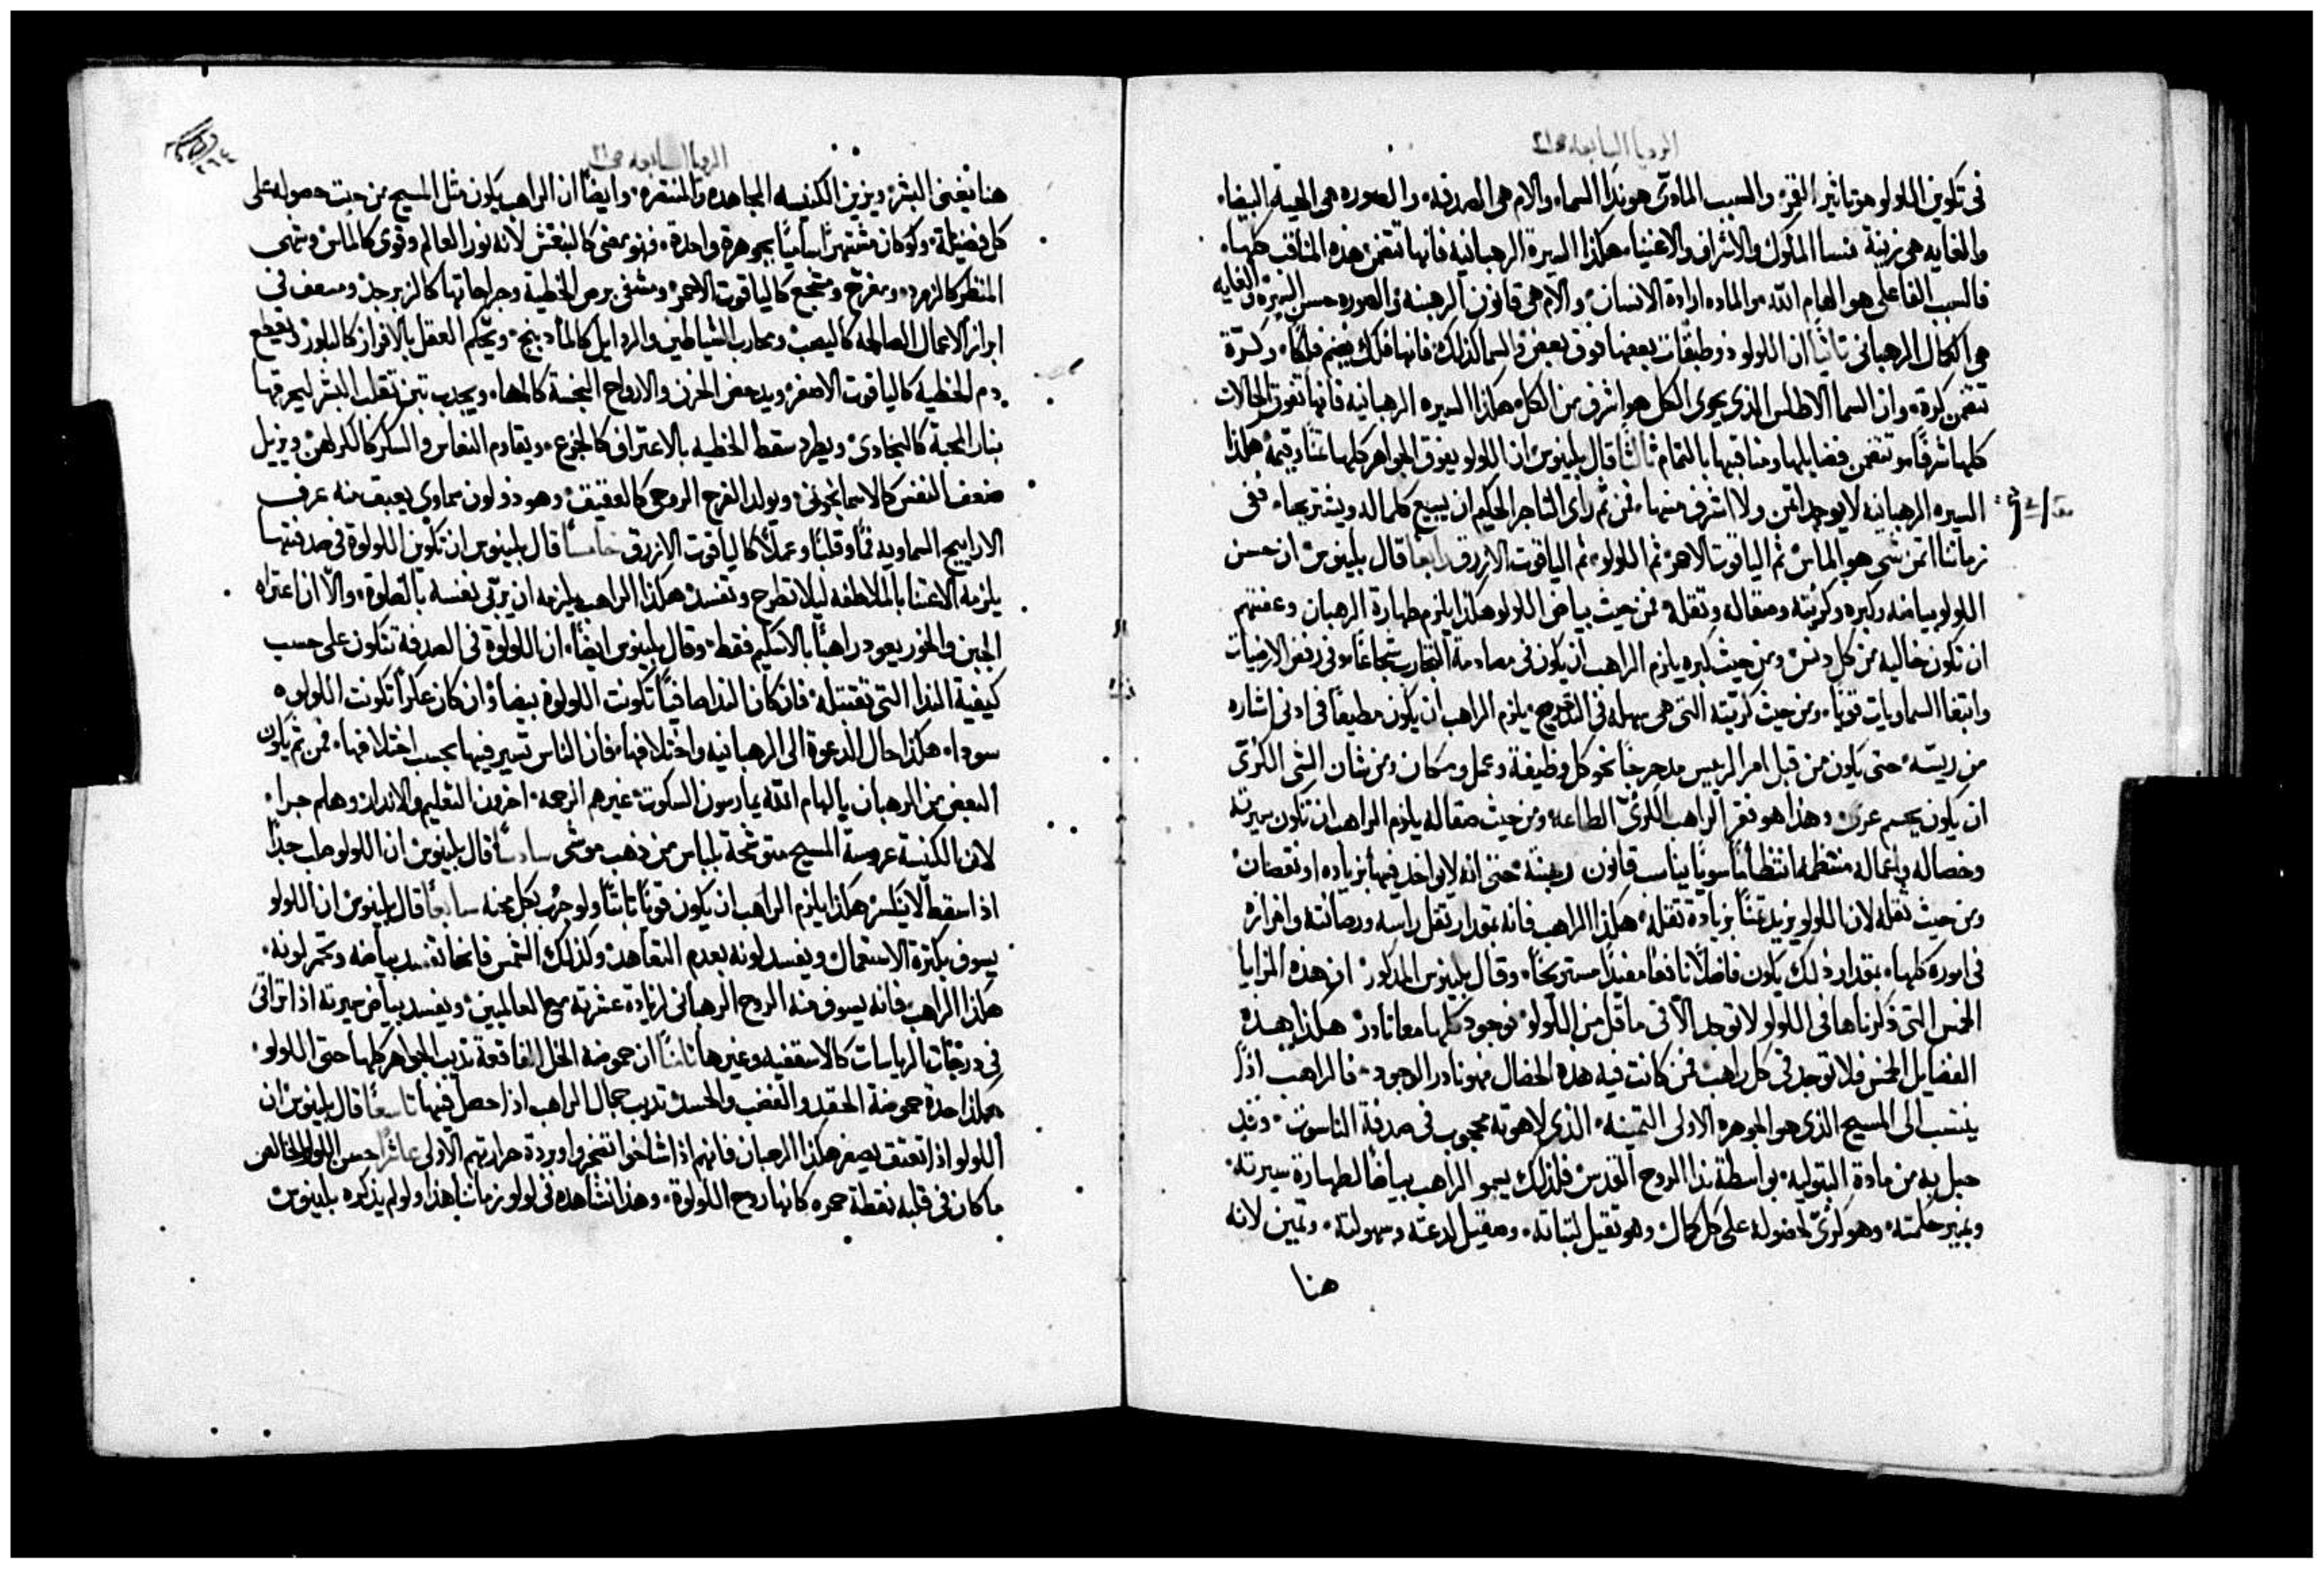 الرويا السابعه ص٢١
في تكوين اللولو هو تاثير القمر والسبب المادى هو ندا السماء والام هى الصدفه والصوره هى الهية البيضاء
والغايه هى زينة نسا الملوك والاشراف والاغنياء هكذا السيرة الرهبانيه فانها تتضمن هذه المناقب كلها
فالسبب الفاعلى هو الهام الله والماده ارادة الانسان والام هى قانون الرهبنه والصوره حسن السيرة والغايه
هى الكمال الرهبانى ثانيًا ان اللولو ذو طبقات بعضها فوق بعض والسما كذلك فانها فلك يضم فلكًا وكرة
تتضمن كرة وان السما الاطلس الذى يحوى الكل هو اشرف من الكل هكذا السيره الرهبانيه فانها تفوق الحالات
كلها شرفًا وتتضمن فضايلها ومناقبها بالتمام ثالثًا قال بلينوس ان اللولو يفوق الجواهر كلها ثمنًا وقيمة هكذا
السيره الرهبانيه لا يوجد اثمن ولا اشرف منها فمن ثم راى التاجر الحكيم ان يبيع كلما له ويشتريها ففى
زماننا اثمن شى هو الماس ثم الياقوت الاحمر ثم اللولو ثم الياقوت الازرق رابعًا قال بلينوس ان حسن
اللولو بياضه وكبره وكريته وصقاله وثقله فمن حيث بياض اللولو هكذا يلزم طهارة الرهبان وعفتهم
ان تكون خاليه من كل دنس ومن حيث كبره يلزم الراهب ان يكون فى مصادمة التجارب شجاعًا وفى رفض الارضيات
وابتغا السماويات قويًا ومن حيث كريته التى هى سهله فى التدحرج يلزم الراهب ان يكون مطيعًا فى ادنى اشاره
من ريسه حتى يكون من قبل امر الرييس مدحرجًا نحو كل وظيفة وعمل ومكان ومن شان الشى الكرى
ان يكون بجسم عرى وهذا هو فقر الراهب الكرى الطاعه ومن حيث صقاله يلزم الراهب ان تكون سيرته
وخصاله واعماله منتظمه انتظامًا سويًا يناسب قانون رهبنته حتى انه لا يواخذ فيها بزياده او نقصان
ومن حيث ثقله لان اللولو يزيد ثمنًا بزيادة ثقله هكذا الراهب فانه بمقدار ثقل راسه ورصانته وافرازه
فى اموره كلها بمقدار ذلك يكون فاضلًا نافعًا مفيدًا مستريحًا وقال بلينوس المذكور ان هذه المزايا
الخمس التى ذكرناها فى اللولو لا توجد الا فى ما قل من اللولو فوجود كلها معا نادر هكذا هذه
الفضايل الخمس فلا توجد فى كل راهب فمن كانت فيه هذه الخصال فهو نادر الوجود فالراهب اذًا
ينتسب الى المسيح الذى هو الجوهره الاولى الثمينه الذى لاهوته محجوب فى صدفة الناسوت وقد
حبل به من مادة البتوليه بواسطة ندا الروح القدس فلذلك يسمو الراهب بياضًا لطهارة سيرته
وبنير حكمته وهو كرى لحصوله على كل كمال وهو ثقيل لثباته وصقيل لدعته وسهولته وثمين لانه
هنا
الرويا السابعه ص٢١
٢٦٤
هنا يغنى البشر ويزين الكنيسه المجاهده والمنتصره وايضًا ان الراهب يكون مثل المسيح من حيث حصوله على
كل فضيلة ولو كان مشتهرًا ساميًا بجوهرة واحدة فهو بمعنى كالبنفش لانه نور العالم وقوى كالماس وشهى
المنظر كالزمرد ومفرح ومشجع كالياقوت الاحمر ومشفى برص الخطية وجراحاتها كالزبرجد ومسعف فى
ابراز الاعمال الصالحه كاليصب ومحارب الشياطين والرذايل كالمادنج ويحكم العقل بالافراز كالبلور ويقطع
دم الخطيه كالياقوت الاصفر ويدحض الحزن والارواح النجسة كالمها ويجذب تبن تقلب البشر ليحرقها
بنار المحبة كالبجادى ويطرد سقط الخطيه بالاعتراف كالجزع ويقاوم النعاس والسكر كالكراهن ويزيل
ضعف النفس كالاسمانجونى ويولد الفرح الروحى كالعقيق وهو ذو لون سماوى يعبق منه عرف
الاراييح السماويه فمًا وقلبًا وعملًا كالياقوت الازرق خامسًا قال بلينوس ان تكوين اللولوة فى صدفتها
يلزمه الاعتنا بالملاطفه ليلا تطرح وتفسد هكذا الراهب يلزمه ان يربى نفسه بالصلوة والا ان اعتراه
الجبن والخور يعود راهبًا بالاسكيم فقط وقال بلينوس ايضًا ان اللولوة فى الصدفة تتكون على حسب
كيفية الندا التى تقتبله فان كان الندا صافيًا تكونت اللولوة بيضا وان كان عكرًا تكونت اللولوه
سودا هكذا حال الدعوة الى الرهبانيه واختلافها فان الناس تسير فيها بحسب اختلافها فمن ثم يكون
البعض من الرهبان بالهام الله يمارسون السكوت غيرهم الرحمه اخرون التعليم والانذار وهلم جرا
لان الكنيسة عروسة المسيح متوشحة بلباس من ذهب موشى سادسًا قال بلينوس ان اللولو صلب جدًا
اذا سقط لا يتكسر هكذا يلزم الراهب ان يكون قويًا ثابتًا ولو جرب بكل محنه سابعًا قال بلينوس ان اللولو
يسوف بكثرة الاستعمال ويفسد لونه بعدم التعاهد وكذلك الشمس فانها تفسد بياضه وتحمر لونه
هكذا الراهب فانه يسوف منه الروح الرهبانى لزيادة عشرته مع العالميين ويفسد بياض سيرته اذا تراقى
فى درجات الرياسات كالاسقفيه وغيرها ثامنًا ان حموضة الخل الفاقعة تذيب الجواهر كلها حتى اللولو
هكذا حدة حموضة الحقد والغضب والحسد تذيب جمال الراهب اذا حصل فيها تاسعًا قال بلينوس ان
اللولو اذا تعتق يصفر هكذا الرهبان فانهم اذا شاخوا تضجروا وبردة حرارتهم الاولى عاشرًا حسن اللولو الخالص
ما كان فى قلبه نقطة حمره كانها روح اللولوة وهذا نشاهده فى لولو زماننا هذا ولو لم يذكره بلينوس